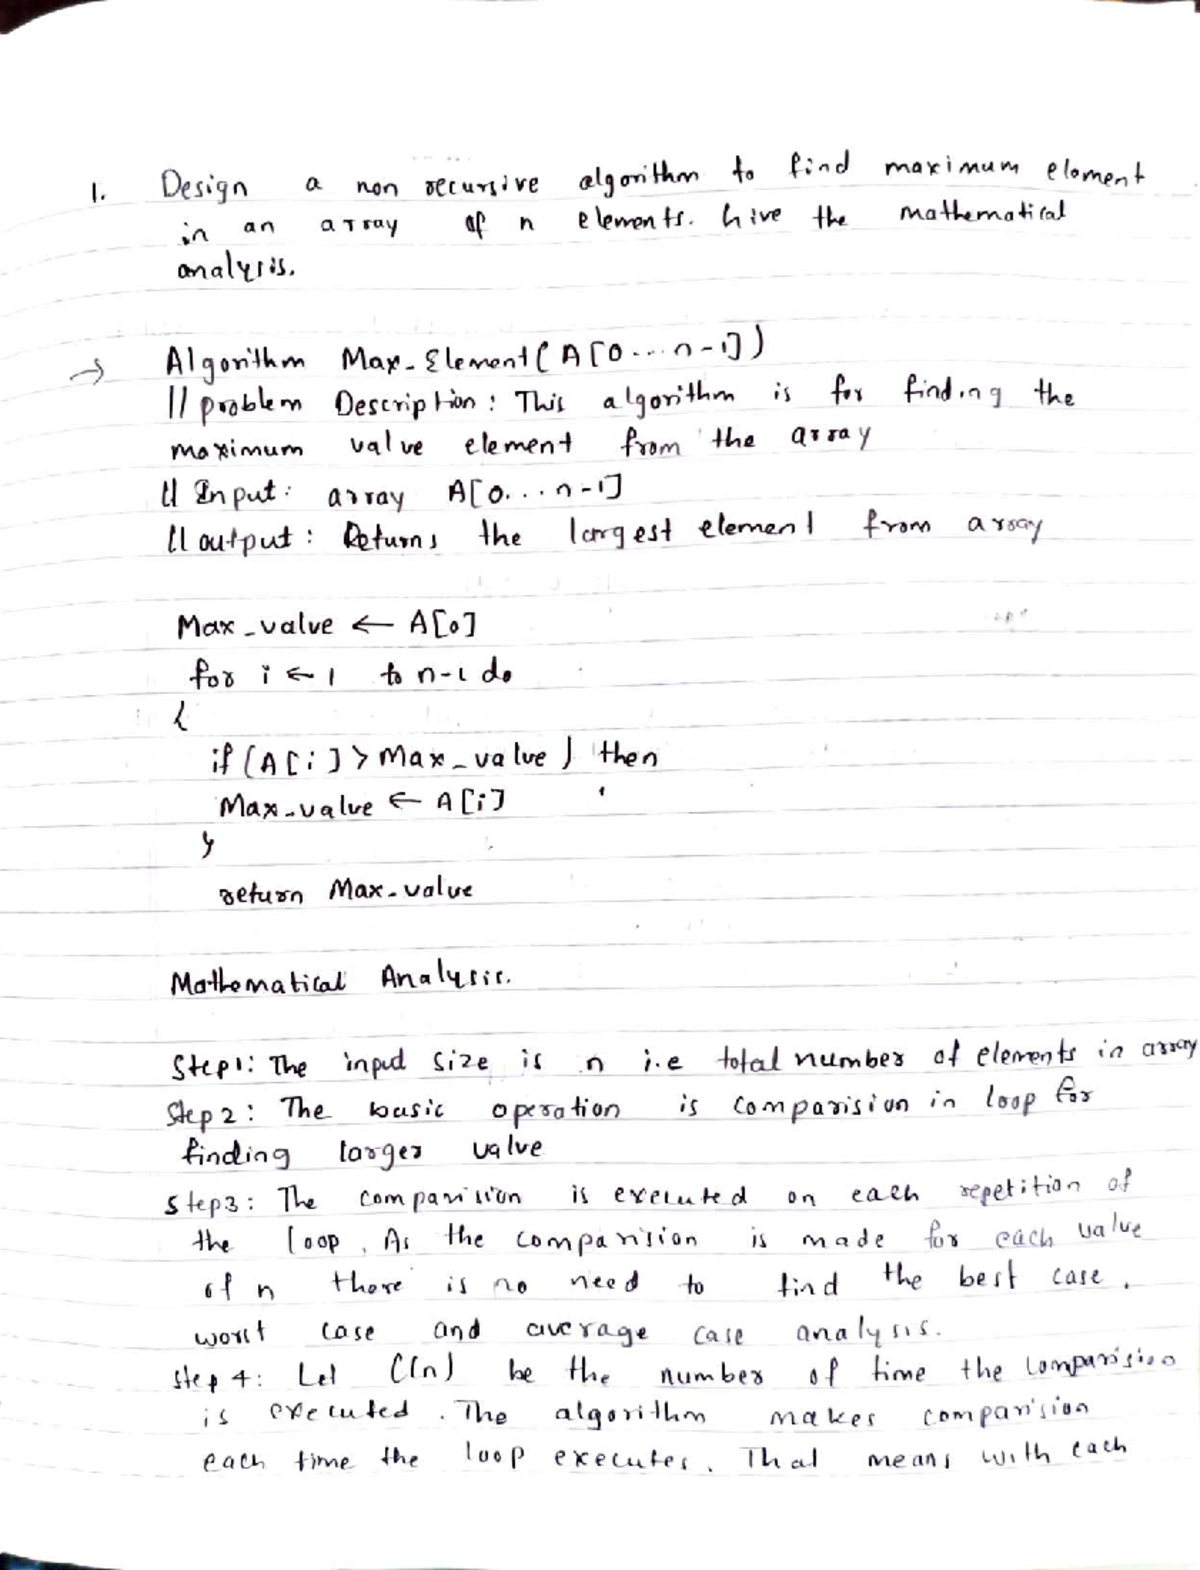 1. Design a non recursive algorithm to find maximum element
in an array of n elements. Give the mathematical
analysis.
→ Algorithm Max_Element(A[0...n-1])
// problem Description: This algorithm is for finding the
maximum value element from the array
// Input: array A[0...n-1]
// output: Returns the largest element from array
Max_value ← A[0]
for i ← 1 to n-1 do
{
if (A[i] > Max_value) then
Max_value ← A[i]
}
return Max_value
Mathematical Analysis.
Step1: The input size is n i.e total number of elements in array
Step 2: The basic operation is comparision in loop for
finding larger value
Step3: The comparision is executed on each repetition of
the loop. As the comparision is made for each value
of n there is no need to find the best case,
worst case and average case analysis.
Step 4: Let C(n) be the number of time the comparision
is executed. The algorithm makes comparision
each time the loop executes. That means with each